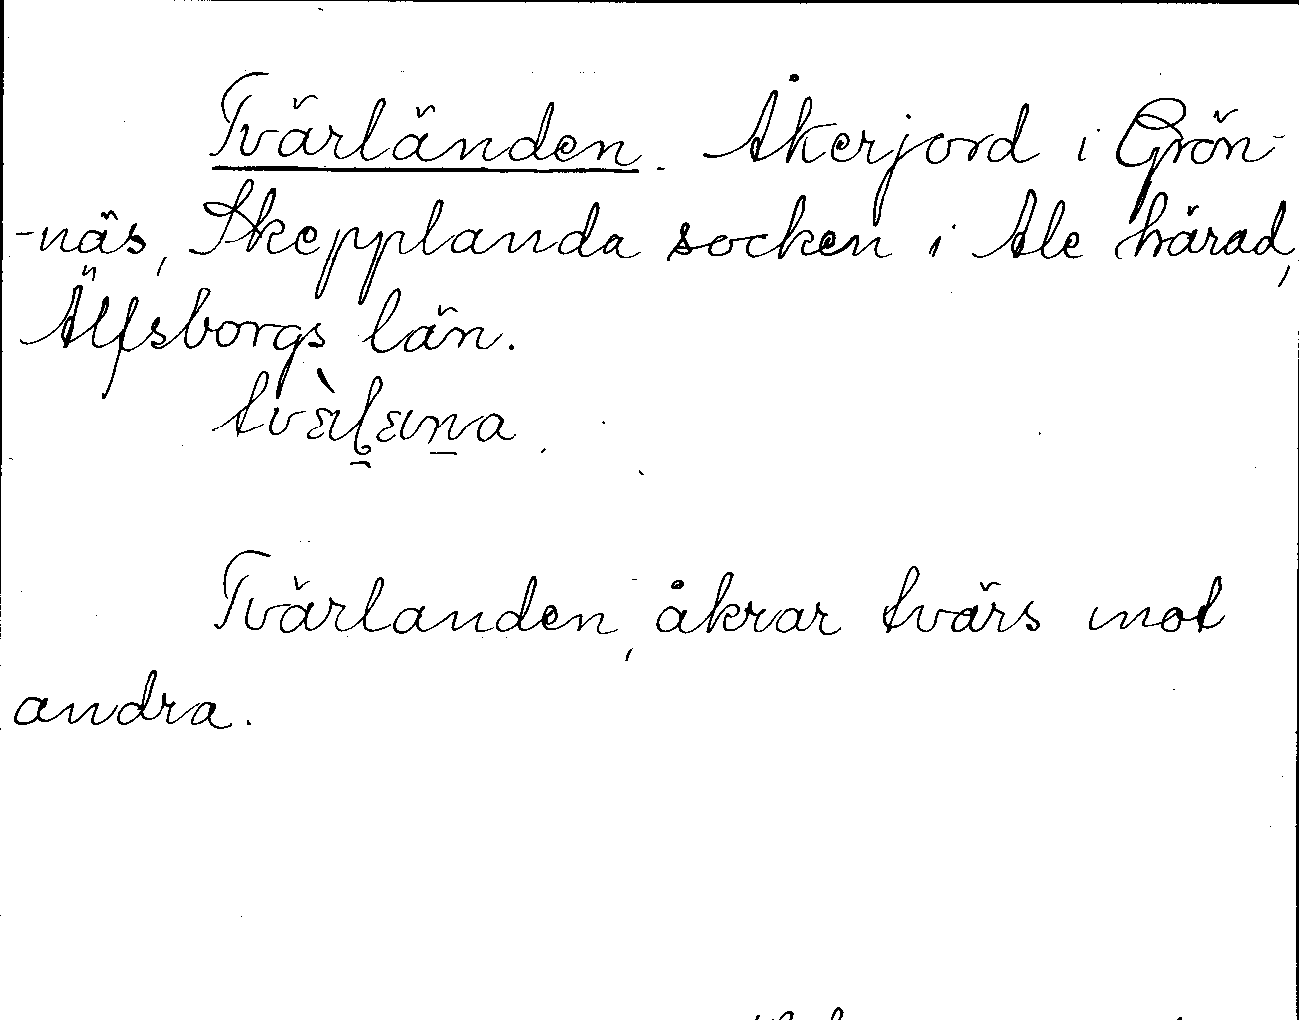 Tvärländen. Åkerjord i Grön-
-näs, Skepplanda socken i Ale härad,
Älfsborgs län.

Tvärlanden, åkrar tvärs mot
andra.